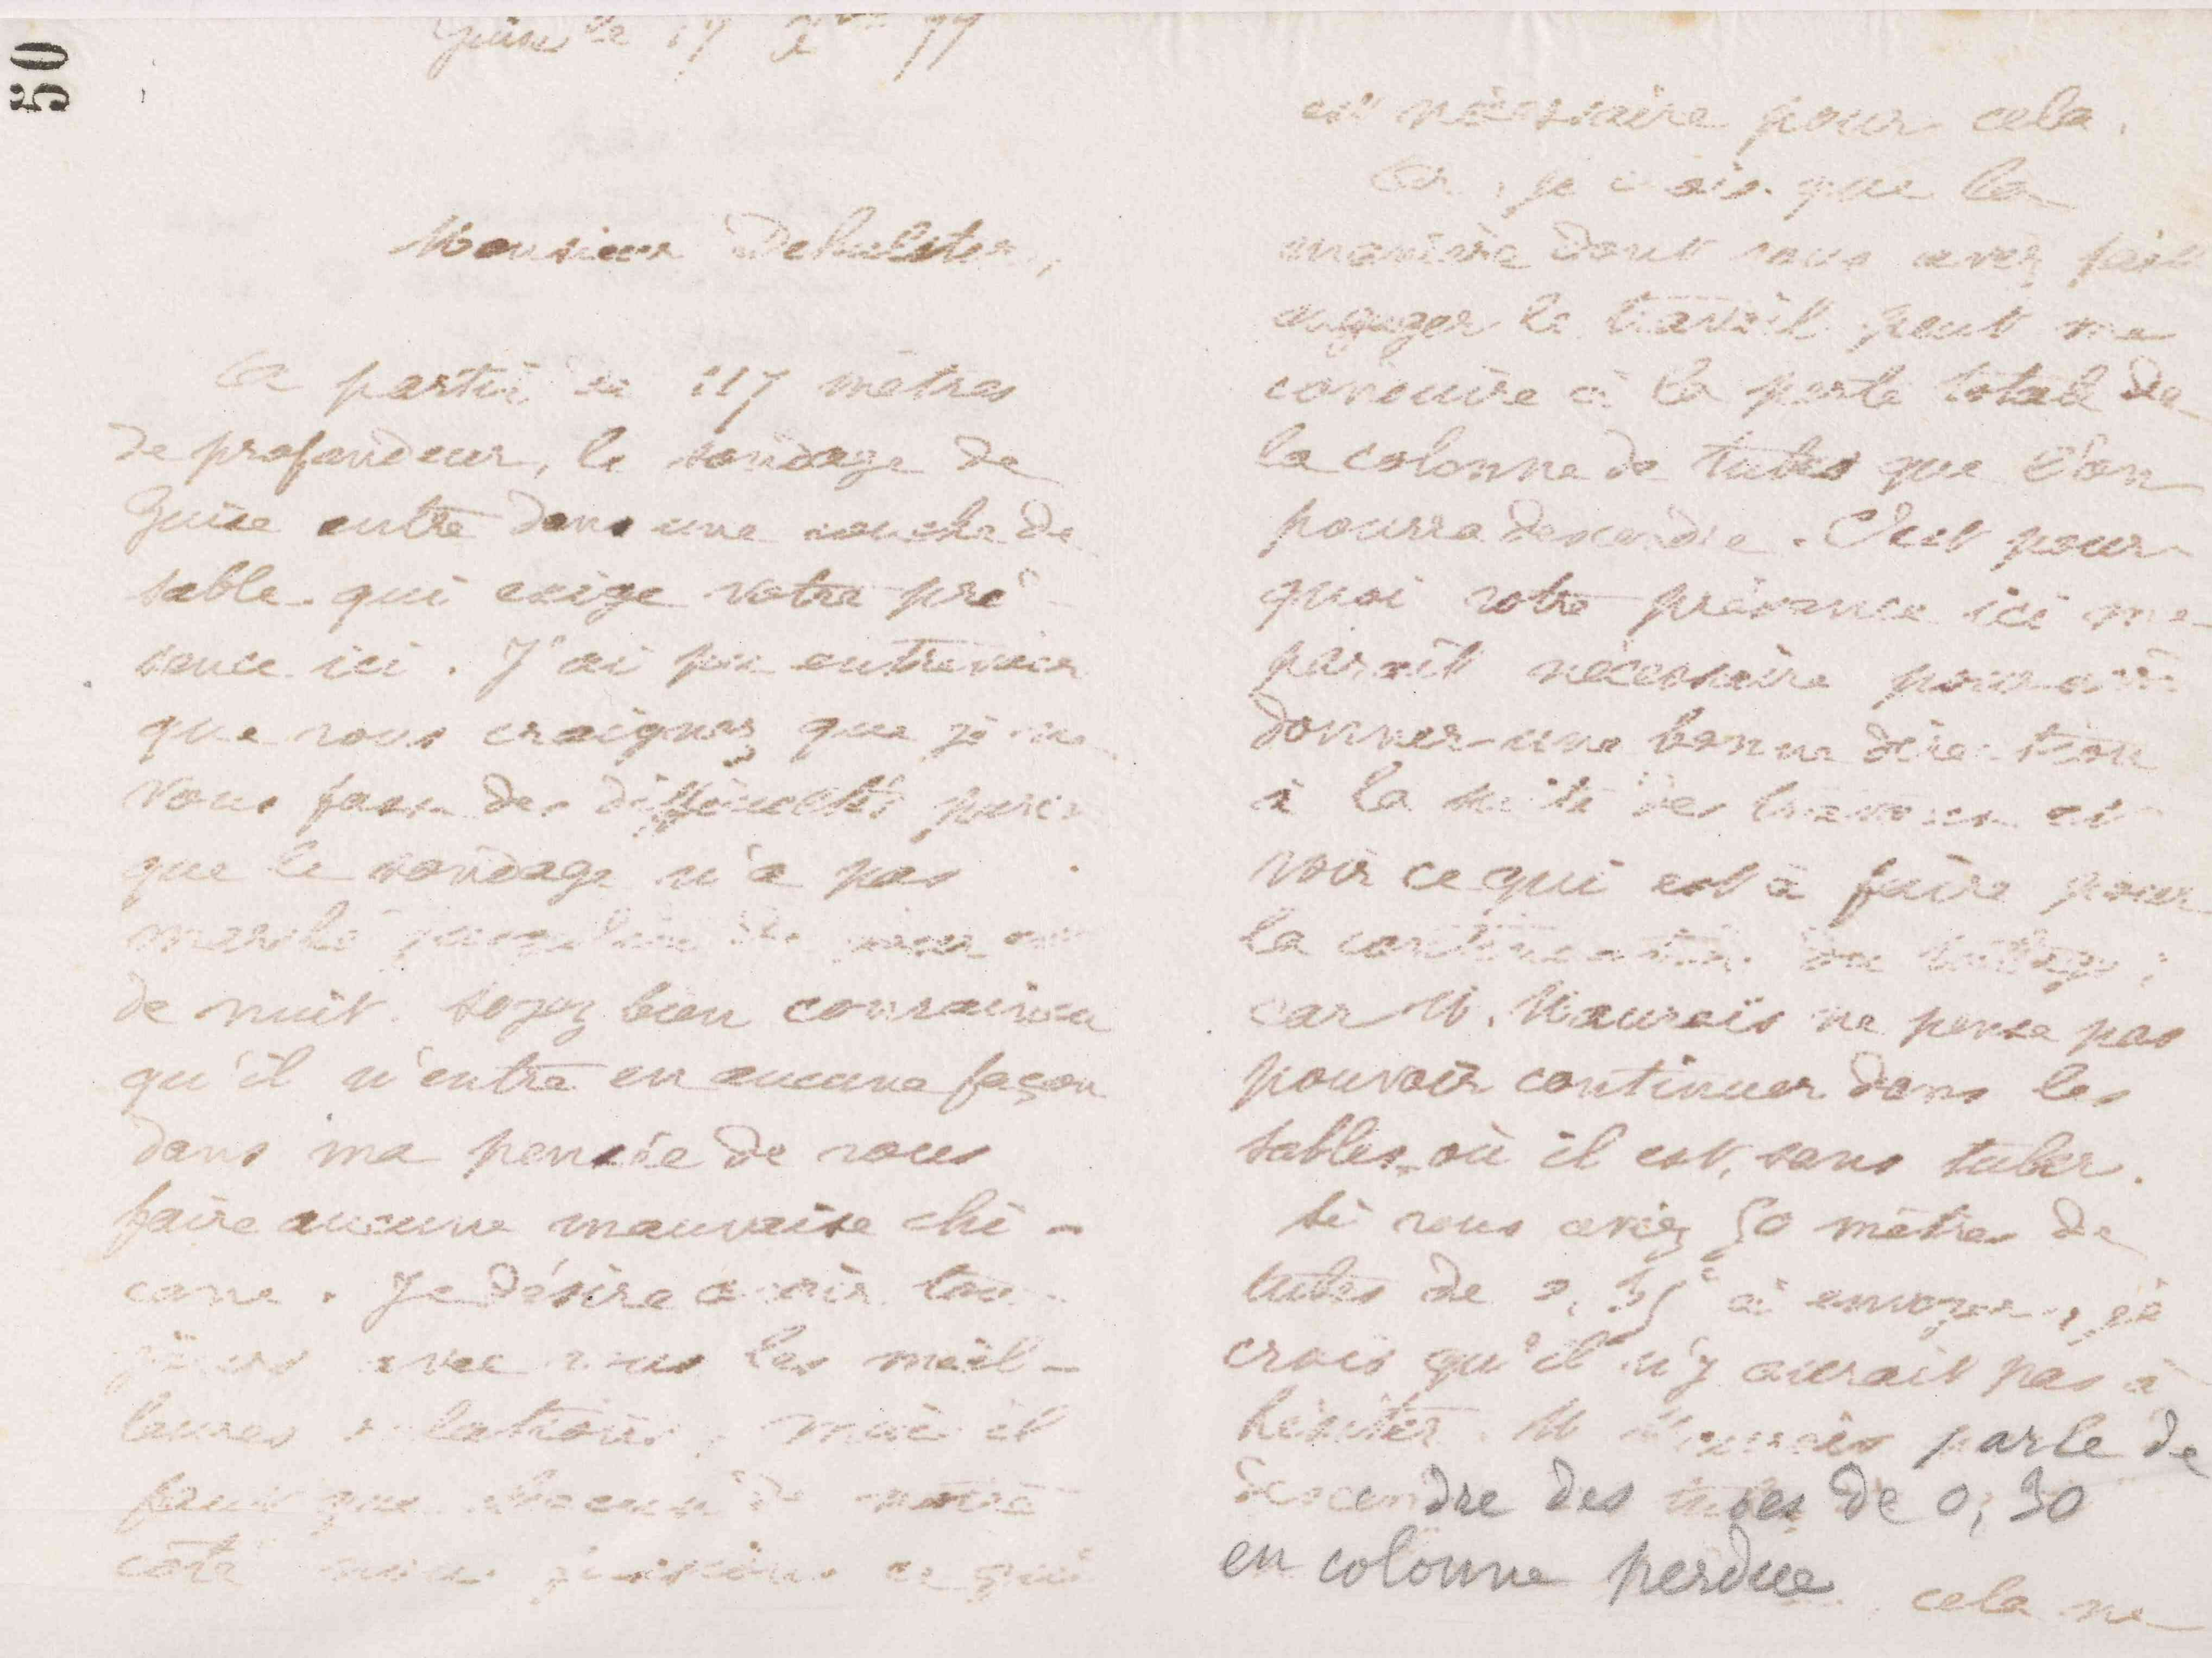 50
Guise le 17 Xbre 77
Monsieur Dehulster,
A partir de 117 mètres
de profondeur, le sondage de
Guise entre dans une couche de
sable qui exige votre pré-
sence ici. J'ai pu entrevoir
que vous craignez que je ne
vous fasse des difficultés parce
que le sondage n'a pas
marché jour et
de nuit. Soyez bien convaincu
qu'il n'entre en aucune façon
dans ma pensée de vous
faire aucune mauvaise chi-
cane. Je désire avoir tou-
jours avec vous les meil-
leures relations, mais il
faut que chacun de notre
côté nous fassions ce qui
est nécessaire pour cela.
Or, je crois que la
manière dont vous avez fait
engager le travail peut me
conduire à la perte totale de
la colonne de tubes que l'on
pourra descendre. C'est pour-
quoi votre présence ici me
paraît nécessaire pour
donner une bonne direction
à la suite des travaux et
voir ce qui est à faire pour
la continuation du tubage;
car M. Maurois ne pense pas
pouvoir continuer dans les
sables où il est, sans tuber.
Si vous aviez 50 mètres de
tubes de 0,35 à envoyer, je
crois qu'il n'y aurait pas à
hésiter. M Maurois parle de
descendre des tubes de 0,30
en colonne perdue cela ne